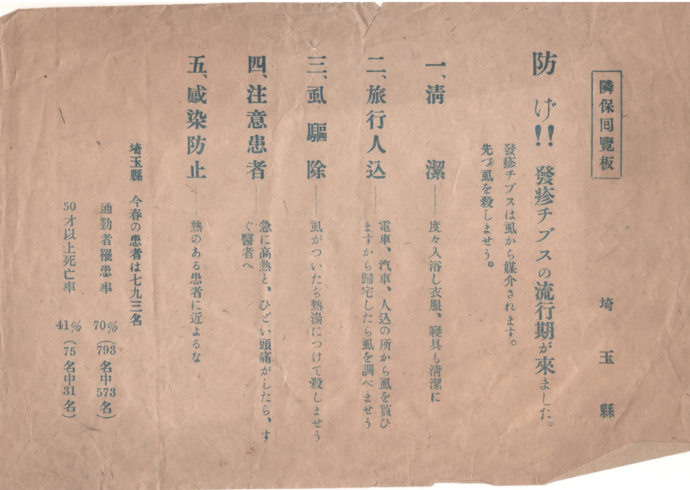 隣保回覽板
埼玉縣
防げ!! 發疹チブスの流行期が來ました。
發疹チブスは虱から媒介されます。
先づ虱を殺しませう。
一、淸潔——度々入浴し衣服、寢具も淸潔に
二、旅行人込——電車、汽車、人込の所から虱を貰ひ
ますから歸宅したら虱を調べませう
三、虱驅除——虱がついたら熱湯につけて殺しませう
四、注意患者——急に高熱と、ひどい頭痛がしたら、す
ぐ醫者へ
五、感染防止——熱のある患者に近よるな
埼玉縣 今春の患者は七九三名
通勤者罹患率 70% (793名中573名)
50才以上死亡率 41% (75名中31名)